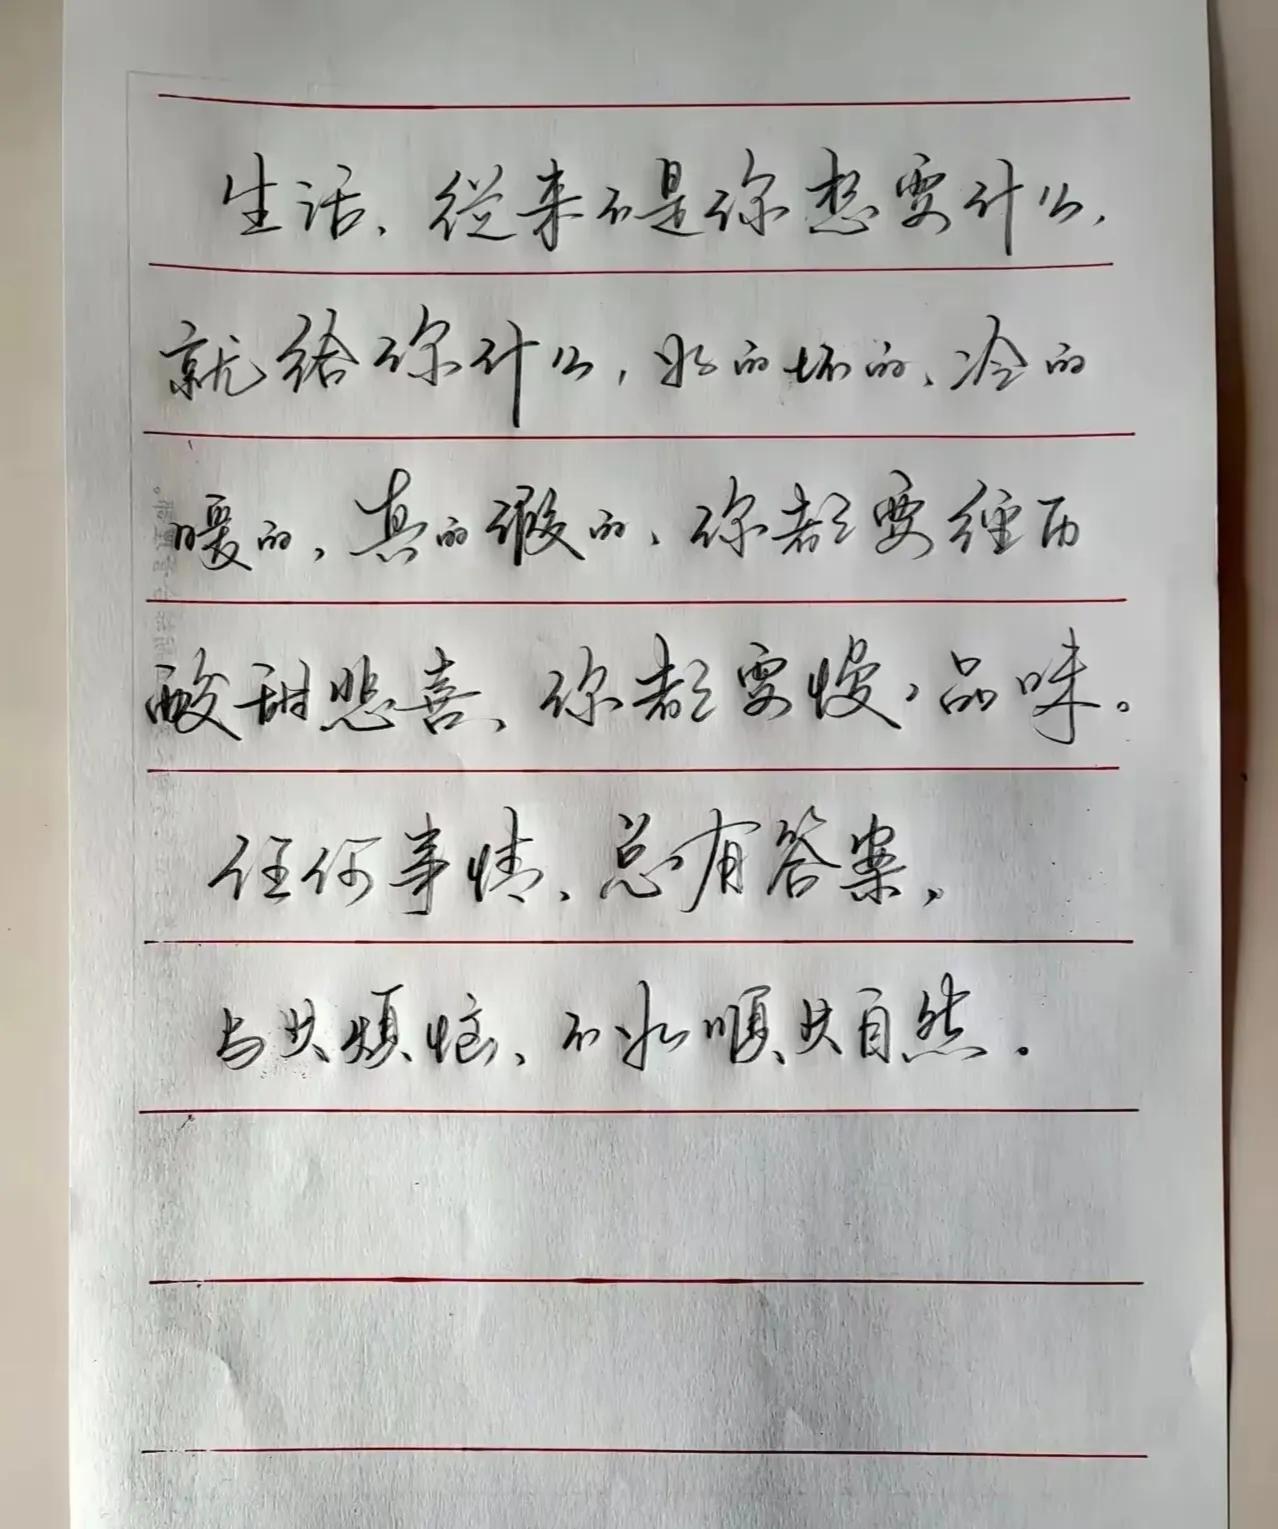 生活、从来不是你想要什么，
就给你什么，好的坏的、冷的
暖的，真的假的、你都要经历
酸甜悲喜、你都要慢慢品味。
任何事情、总有答案，
与其烦恼、不如顺其自然。